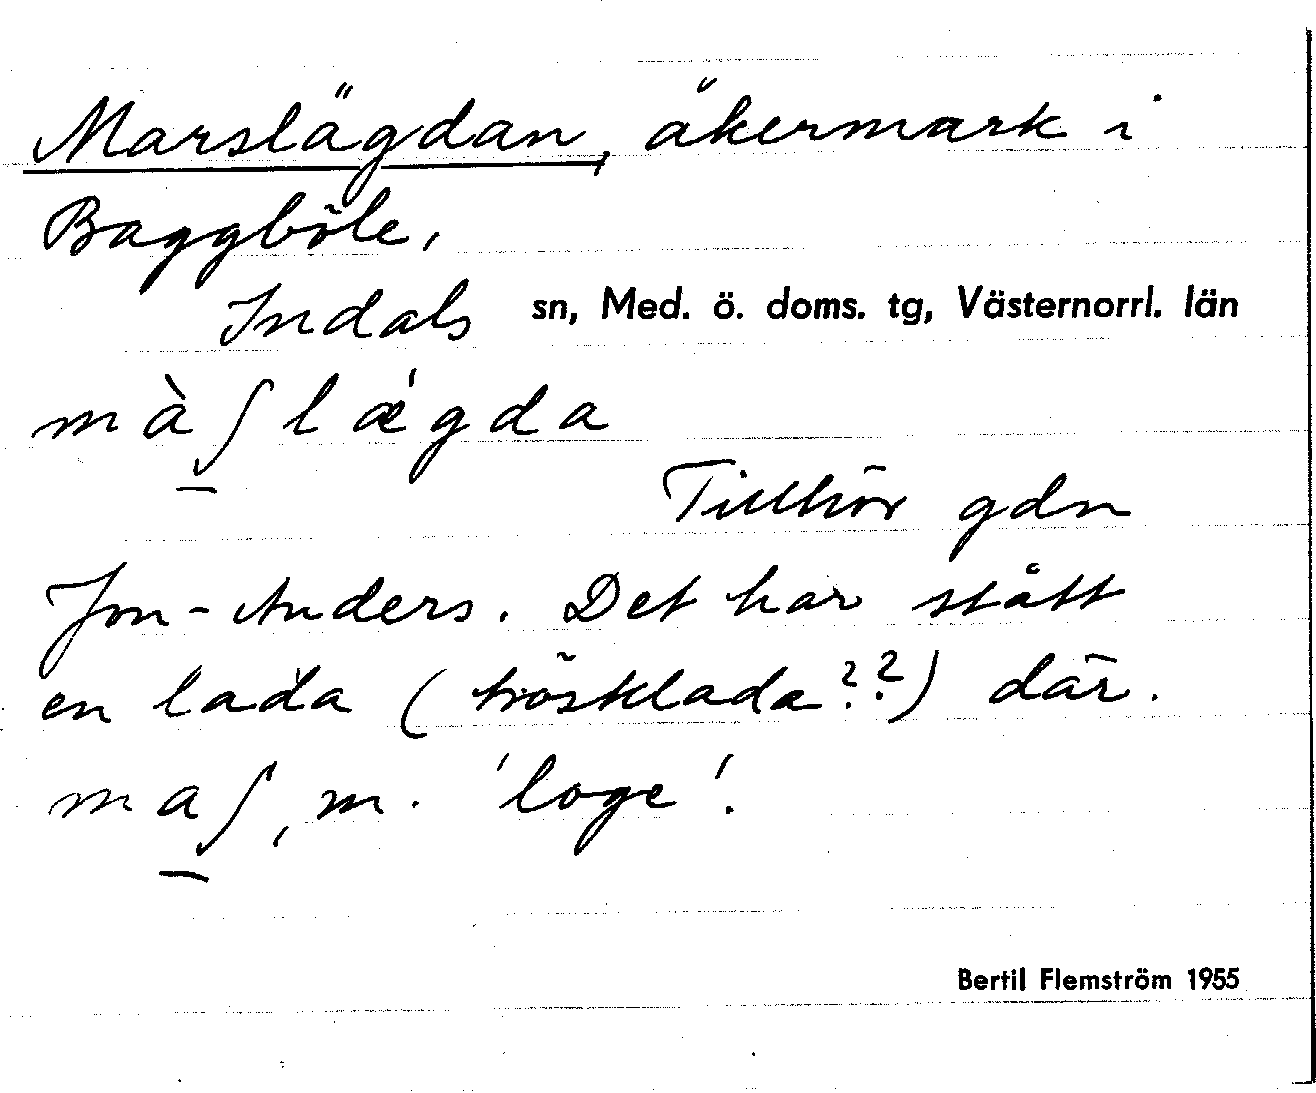 Marslägdan, åkermark i
Baggböle,
Indals sn, Med. ö. doms. tg, Västernorrl. län
màʃlǽgda
Tillhör gdn
Jon-Anders. Det har stått
en lada (tröskladda??) där.
maʃ, m. 'loge'.
Bertil Flemström 1955